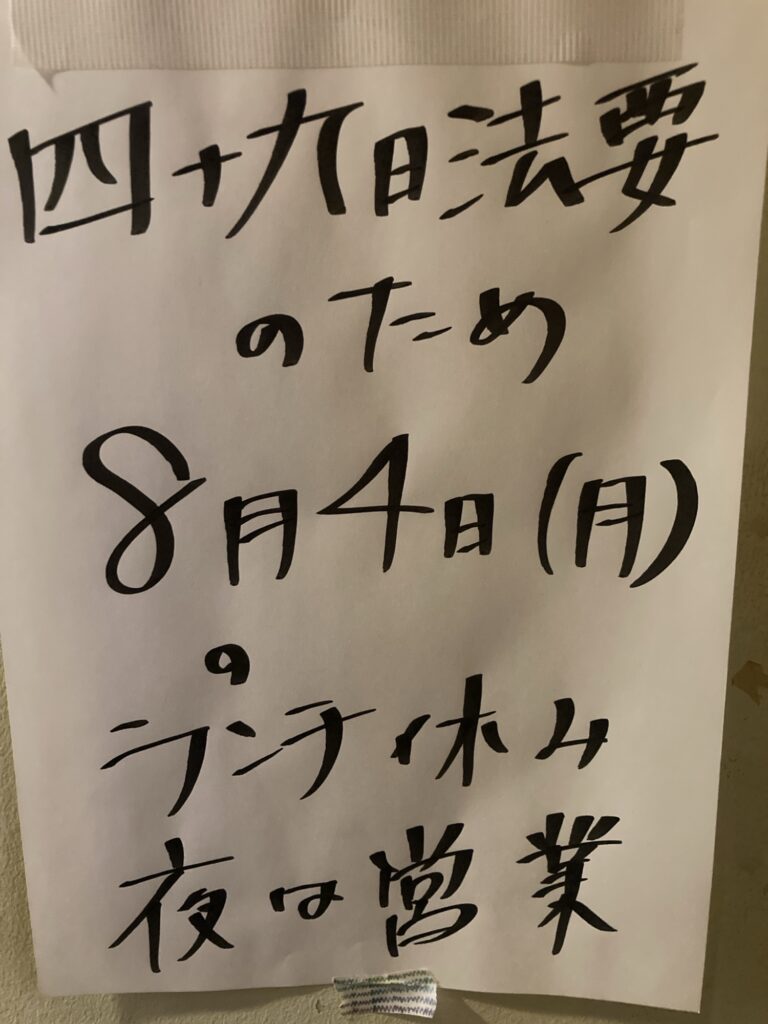 四十九日法要
のため
8月4日(月)
の
ランチ休み
夜は営業